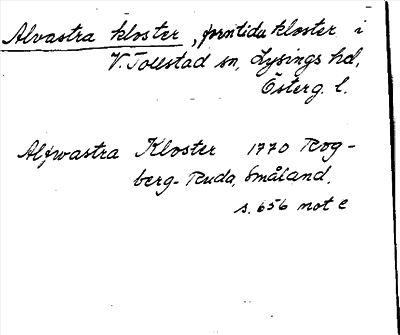 Alvastra kloster, forntida kloster i
V. Tollstad sn, Lysings hd,
Österg. l.
Alfwastra Kloster 1770 Rog-
berg-Ruda, Småland,
s. 656 not e